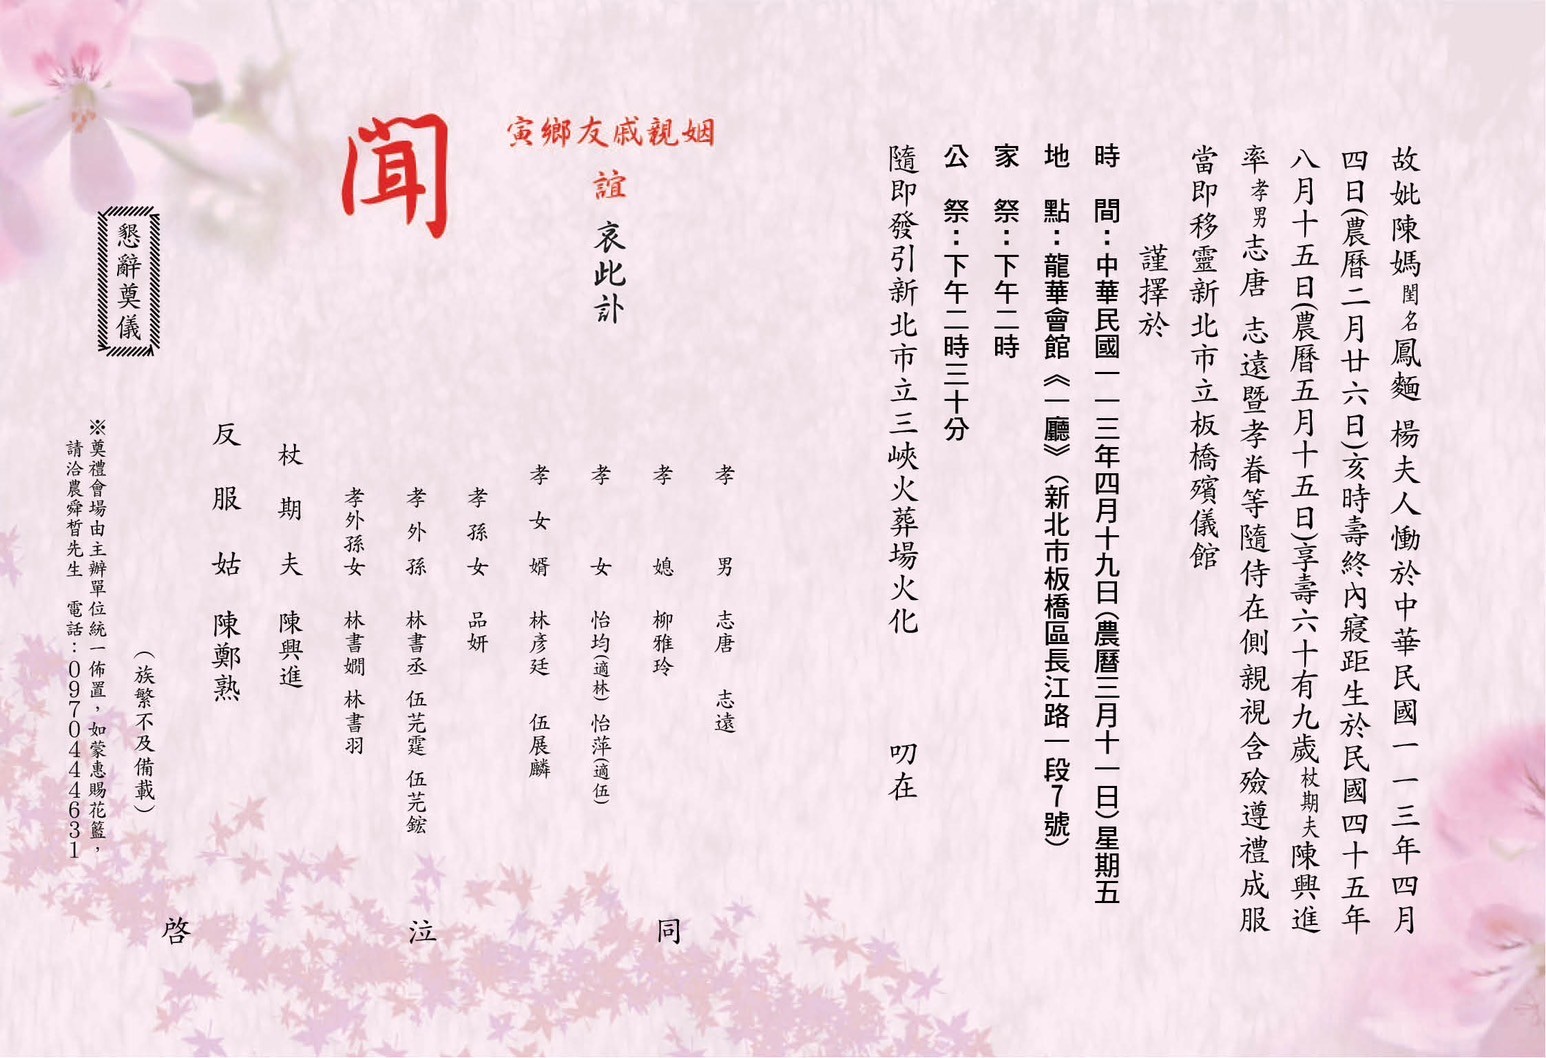 故妣陳媽閨名鳳麵 楊夫人慟於中華民國一一三年四月
四日(農曆二月廿六日)亥時壽終內寢距生於民國四十五年
八月十五日(農曆五月十五日)享壽六十有九歲杖期夫陳興進
率孝男志唐 志遠暨孝眷等隨侍在側親視含殮遵禮成服
當即移靈新北市立板橋殯儀館
謹擇於
時 間：中華民國一一三年四月十九日(農曆三月十一日)星期五
地 點：龍華會館《一廳》(新北市板橋區長江路一段7號)
家 祭：下午二時
公 祭：下午二時三十分
隨即發引新北市立三峽火葬場火化 叨在
姻親戚友鄉寅
誼 哀此訃
聞
孝 男 志唐 志遠
孝 媳 柳雅玲
孝 女 怡均(適林) 怡萍(適伍)
孝 女 婿 林彥廷 伍展麟
孝 孫 女 品妍
孝 外 孫 林書丞 伍芫霆 伍芫鋐
孝外孫女 林書嫺 林書羽
杖 期 夫 陳興進
反 服 姑 陳鄭熟
同 泣 啓
(族繁不及備載)
懇辭奠儀
※奠禮會場由主辦單位統一佈置，如蒙惠賜花籃，
請洽農舜晳先生 電話：0970444631